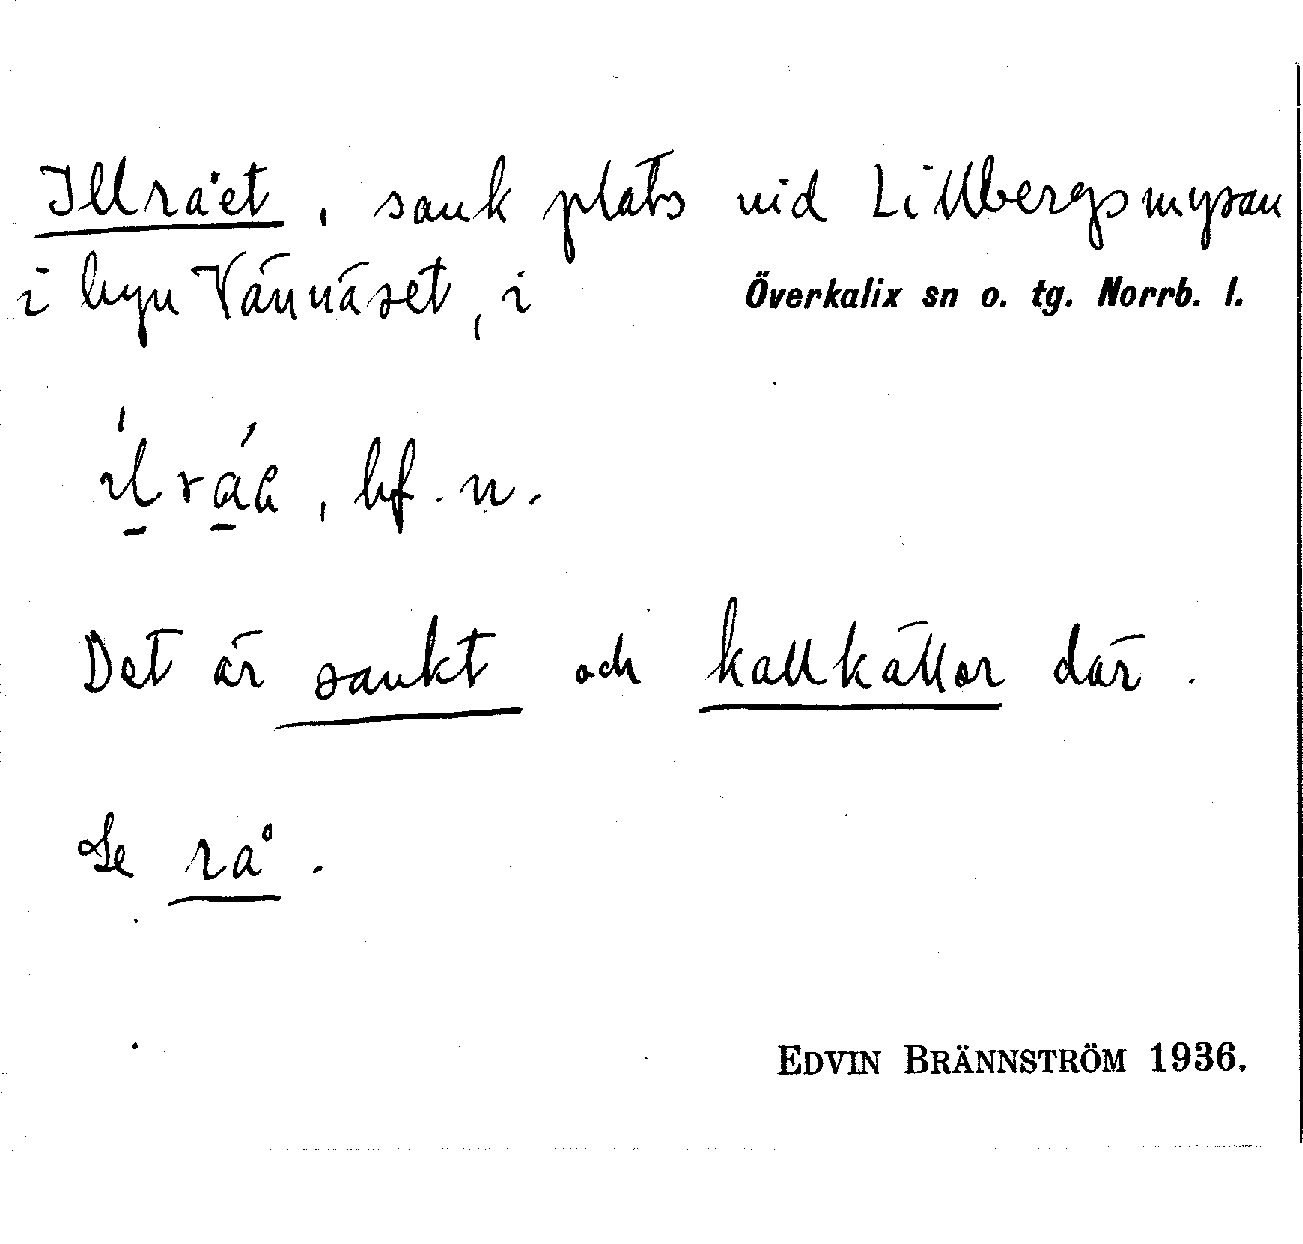 Illrået, sank plats vid Lillbergsmyran
i byn Vännäset, i Överkalix sn o. tg. Norrb. l.
bf. n.
Det är sankt och kallkällor där.
Se rå.
EDVIN BRÄNNSTRÖM 1936.